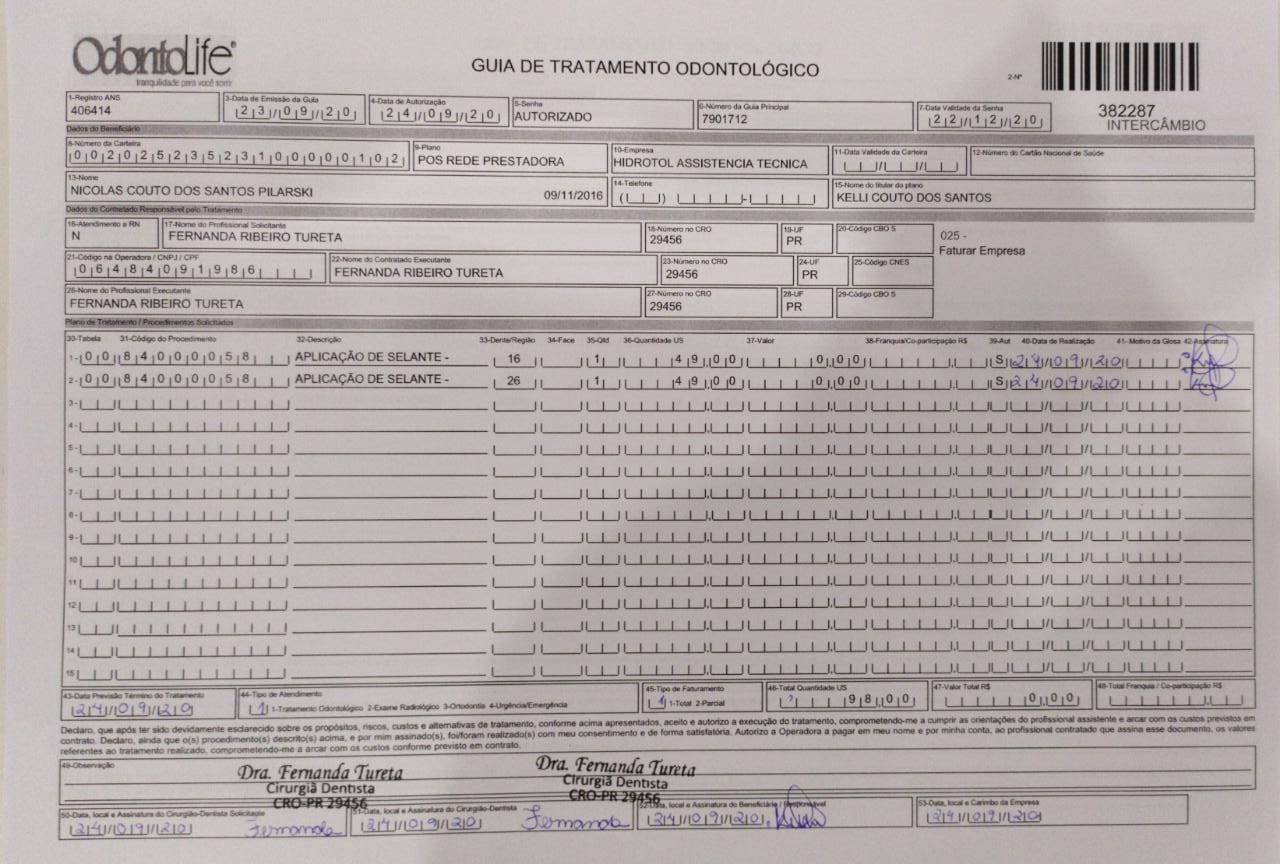 OdontoLife®
tranquilidade para você sorrir
GUIA DE TRATAMENTO ODONTOLÓGICO
2-Nº
382287
INTERCÂMBIO
1-Registro ANS
406414
3-Data de Emissão da Guia
23/09/20
4-Data de Autorização
24/09/20
5-Senha
AUTORIZADO
6-Número da Guia Principal
7901712
7-Data Validade da Senha
22/12/20
Dados do Beneficiário
8-Número da Carteira
00202523523100000102
9-Plano
POS REDE PRESTADORA
10-Empresa
HIDROTOL ASSISTENCIA TECNICA
11-Data Validade da Carteira
12-Número do Cartão Nacional de Saúde
13-Nome
NICOLAS COUTO DOS SANTOS PILARSKI 09/11/2016
14-Telefone
15-Nome do titular do plano
KELLI COUTO DOS SANTOS
Dados do Contratado Responsável pelo Tratamento
16-Atendimento a RN
N
17-Nome do Profissional Solicitante
FERNANDA RIBEIRO TURETA
18-Número no CRO
29456
19-UF
PR
20-Código CBO S
025 -
Faturar Empresa
21-Código na Operadora / CNPJ / CPF
06484091986
22-Nome do Contratado Executante
FERNANDA RIBEIRO TURETA
23-Número no CRO
29456
24-UF
PR
25-Código CNES
26-Nome do Profissional Executante
FERNANDA RIBEIRO TURETA
27-Número no CRO
29456
28-UF
PR
29-Código CBO S
Plano de Tratamento / Procedimentos Solicitados
30-Tabela 31-Código do Procedimento 32-Descrição 33-Dente/Região 34-Face 35-Qtd 36-Quantidade US 37-Valor 38-Franquia/Co-participação R$ 39-Aut 40-Data de Realização 41- Motivo da Glosa 42-Assinatura
1- 00 84000058 APLICAÇÃO DE SELANTE - 16 1 49,00 0,00 S 24/09/20
2- 00 84000058 APLICAÇÃO DE SELANTE - 26 1 49,00 0,00 S 24/09/20
3-
4-
5-
6-
7-
8-
9-
10
11
12
13
14
15
43-Data Previsão Término do Tratamento
24/09/20
44-Tipo de Atendimento
1 1-Tratamento Odontológico 2-Exame Radiológico 3-Ortodontia 4-Urgência/Emergência
45-Tipo de Faturamento
1 1-Total 2-Parcial
46-Total Quantidade US
98,00
47-Valor Total R$
0,00
48-Total Franquia / Co-participação R$
Declaro, que após ter sido devidamente esclarecido sobre os propósitos, riscos, custos e alternativas de tratamento, conforme acima apresentados, aceito e autorizo a execução do tratamento, comprometendo-me a cumprir as orientações do profissional assistente e arcar com os custos previstos em
contrato. Declaro, ainda que o(s) procedimento(s) descrito(s) acima, e por mim assinado(s), foi/foram realizado(s) com meu consentimento e de forma satisfatória. Autorizo a Operadora a pagar em meu nome e por minha conta, ao profissional contratado que assina esse documento, os valores
referentes ao tratamento realizado, comprometendo-me a arcar com os custos conforme previsto em contrato.
49-Observação
Dra. Fernanda Tureta
Cirurgiã Dentista
CRO-PR 29456
Dra. Fernanda Tureta
Cirurgiã Dentista
CRO-PR 29456
50-Data, local e Assinatura do Cirurgião-Dentista Solicitante
24/09/20 Fernanda
51-Data, local e Assinatura do Cirurgião-Dentista
24/09/20 Fernanda
52-Data, local e Assinatura do Beneficiário / Responsável
24/09/20
53-Data, local e Carimbo da Empresa
24/09/20